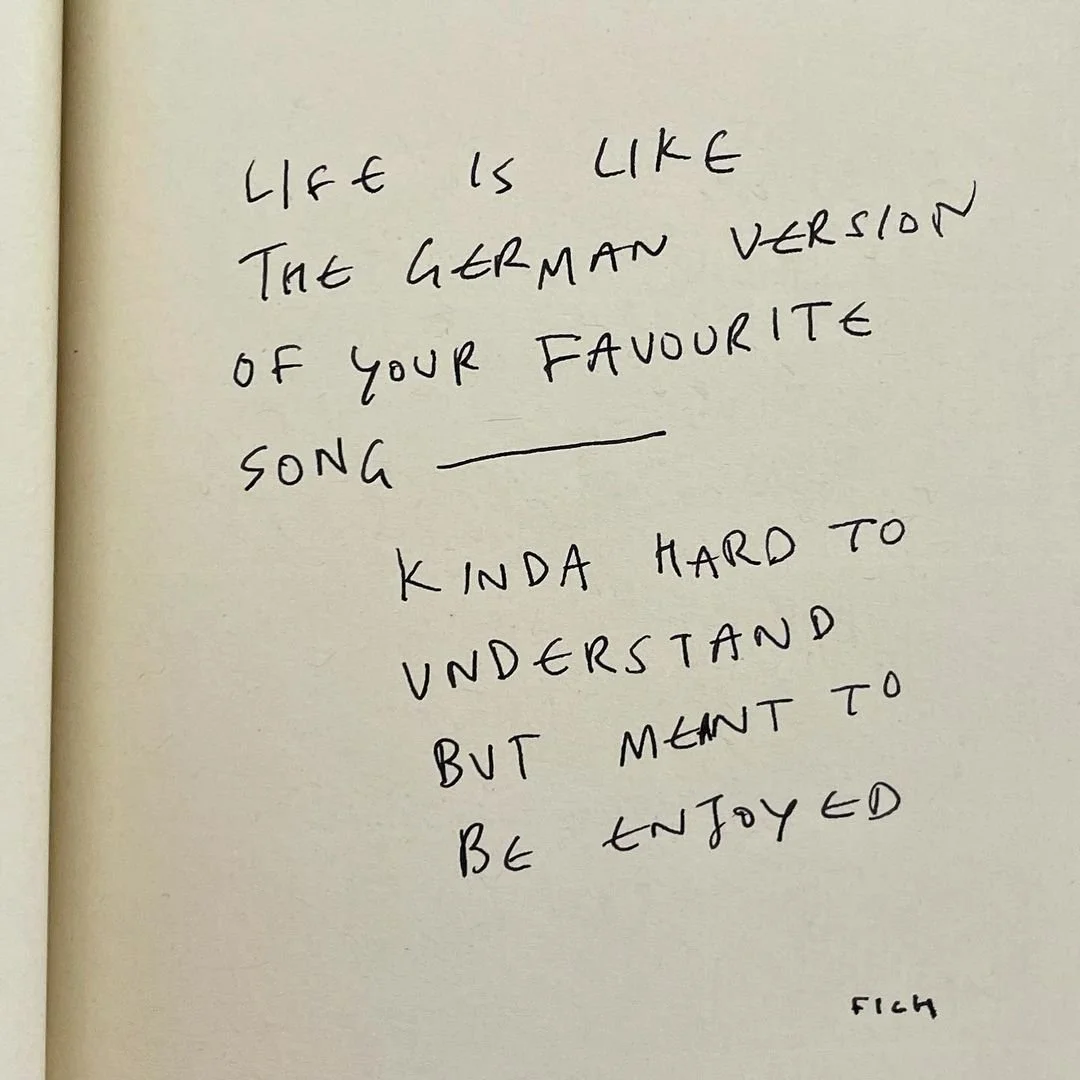 LIFE IS LIKE
THE GERMAN VERSION
OF YOUR FAVOURITE
SONG —
KINDA HARD TO
UNDERSTAND
BUT MEANT TO
BE ENJOYED
FICH